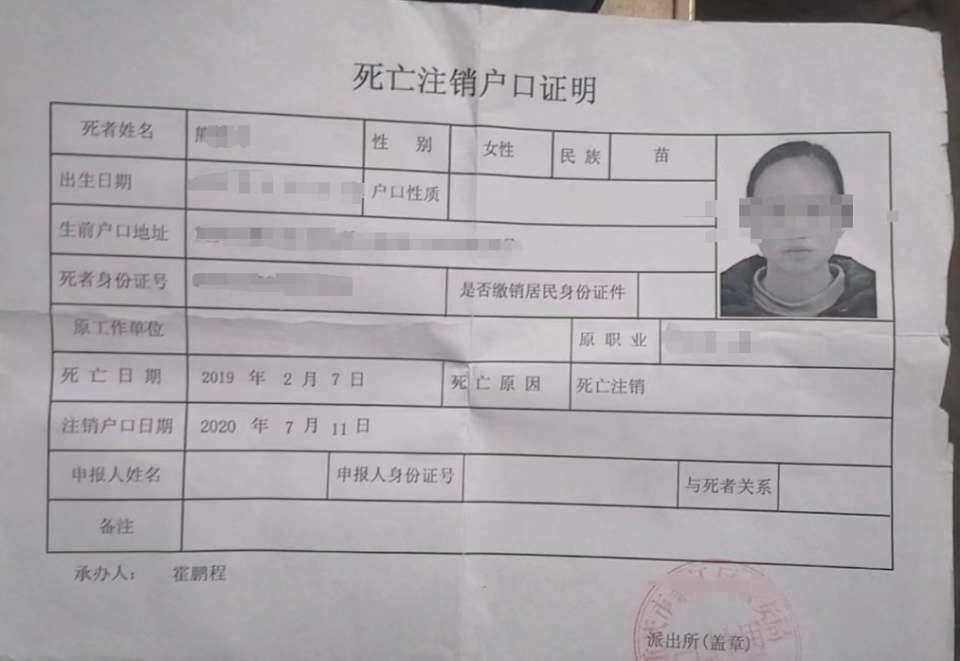 死亡注销户口证明
死者姓名 性 别 女性 民 族 苗
出生日期 户口性质
生前户口地址 号
死者身份证号 是否缴销居民身份证件
原工作单位 原 职 业
死 亡 日 期 2019 年 2 月 7 日 死 亡 原 因 死亡注销
注销户口日期 2020 年 7 月 11 日
申报人姓名 申报人身份证号 与死者关系
备注
承办人： 霍鹏程
派出所(盖章)